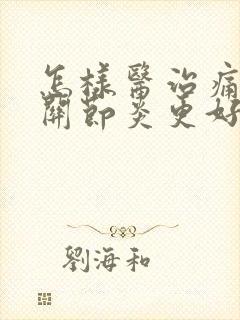 怎樣醫治痛
關節炎更好
劉海和